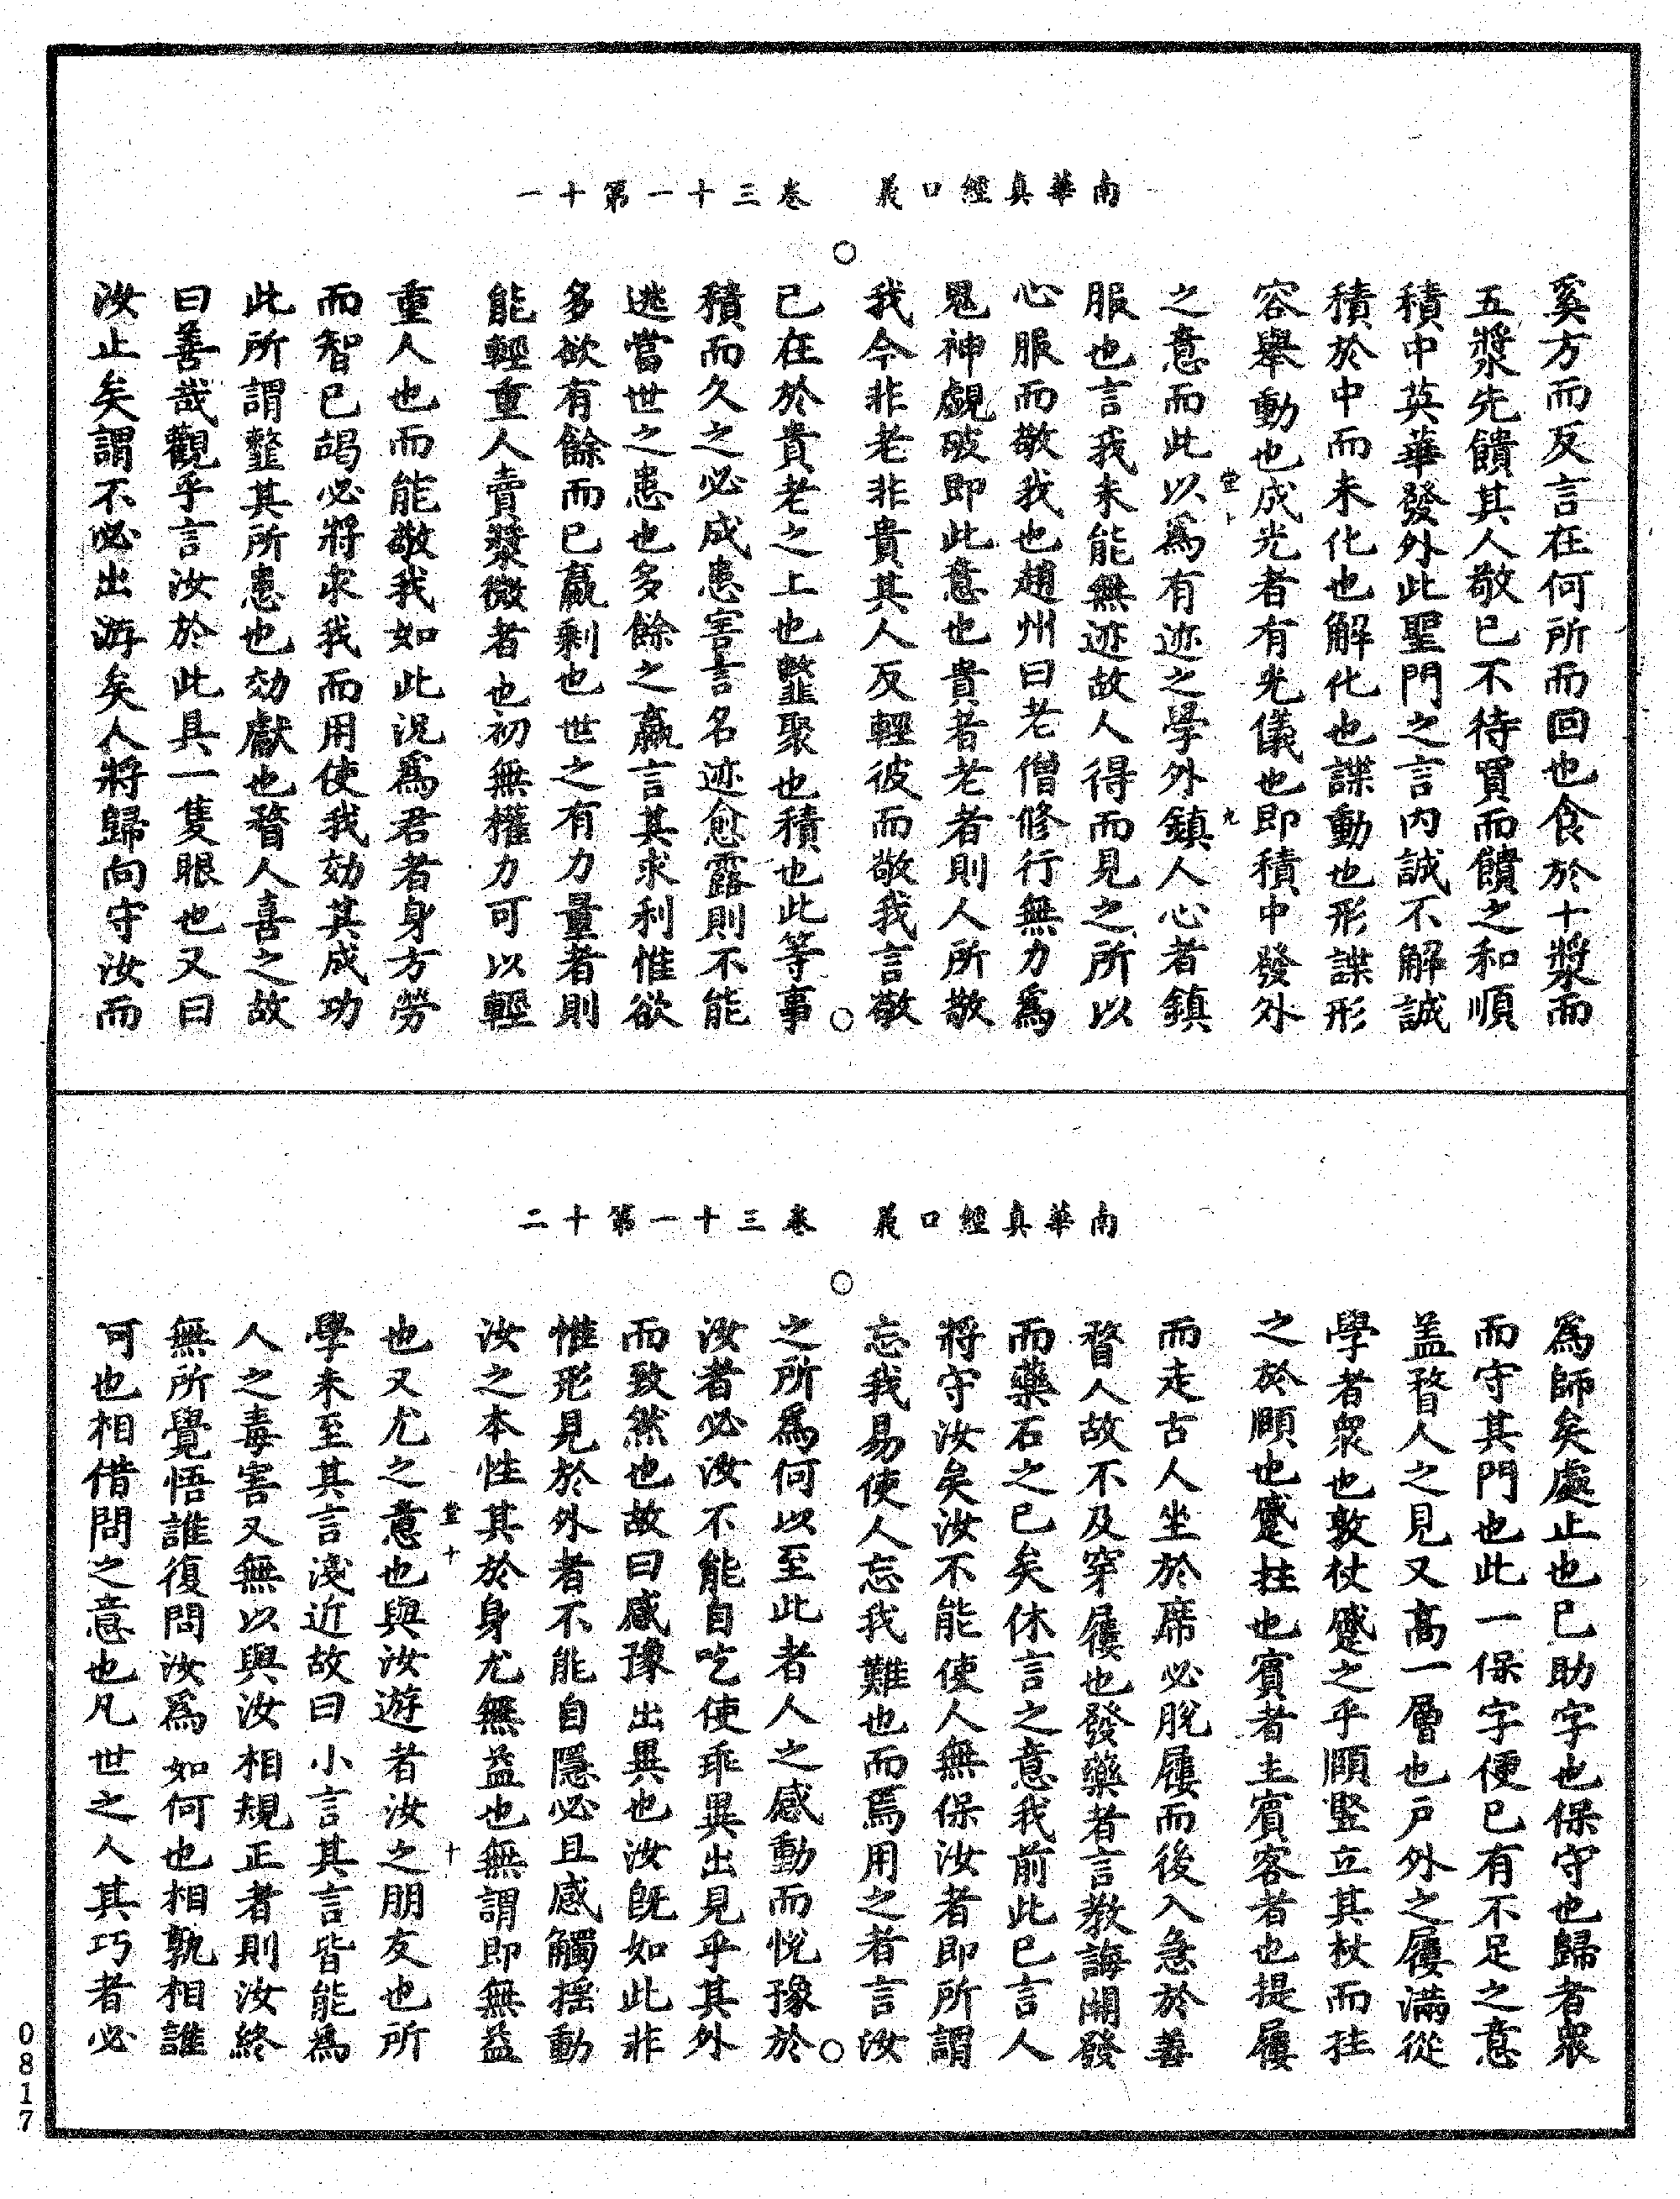 南華真經口義　卷三十一第十一
奚方而反言在何所而回也食於十漿而
五漿先饋其人敬已不待買而饋之和順
積中英華發外此聖門之言内誠不解誠
積於中而未化也解化也諜動也形諜形
容舉動也成光者有光儀也即積中發外
之意而此以為有迹之學外鎮人心者鎮
服也言我未能無迹故人得而見之所以
心服而敬我也趙州曰老僧修行無力為
鬼神覷破即此意也貴者老者則人所敬
我今非老非貴其人反輕彼而敬我言敬
己在於貴老之上也䪠聚也積也此等事
積而久之必成患害言名迹愈露則不能
逃當世之患也多餘之贏言其求利惟欲
多欲有餘而已贏剩也世之有力量者則
能輕重人賣漿微者也初無權力可以輕
重人也而能敬我如此况為君者身方勞
而智已竭必將求我而用使我効其成功
此所謂䪠其所患也効獻也瞀人喜之故
曰善哉觀乎言汝於此具一隻眼也又曰
汝止矣謂不必出游矣人將歸向守汝而
堂十
九
南華真經口義　卷三十一第十二
為師矣處止也已助字也保守也歸者衆
而守其門也此一保字便已有不足之意
盖瞀人之見又高一層也戶外之屨滿從
學者衆也敦杖蹙之乎頤竪立其杖而拄
之於頤也蹙拄也賓者主賓客者也提屨
而走古人坐於席必脫屨而後入急於善
瞀人故不及穿屨也發藥者言教誨開發
而藥石之已矣休言之意我前此已言人
將守汝矣汝不能使人無保汝者即所謂
忘我易使人忘我難也而焉用之者言汝
之所為何以至此者人之感動而悅豫於
汝者必汝不能自吃使乖異出見乎其外
而致然也故曰感豫出異也汝旣如此非
惟形見於外者不能自隱必且感觸搖動
汝之本性其於身尤無益也無謂即無益
也又尤之意也與汝遊者汝之朋友也所
學未至其言淺近故曰小言其言皆能為
人之毒害又無以與汝相規正者則汝終
無所覺悟誰復問汝為如何也相孰相誰
可也相借問之意也凡世之人其巧者必
堂十
十
0817